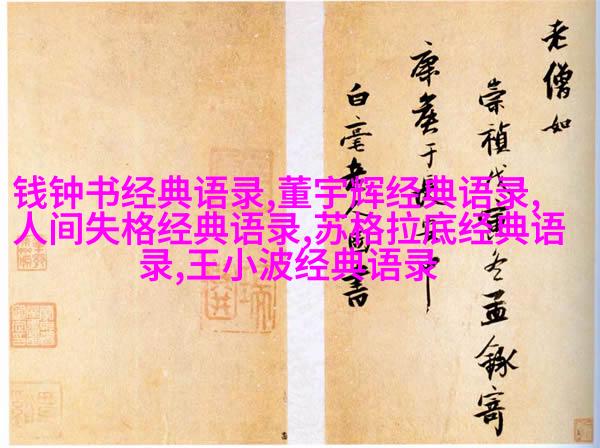 钱钟书经典语录,董宇辉经典语录,
人间失格经典语录,苏格拉底经典语
录,王小波经典语录
老僧如
崇禎戊寅冬孟録寄
康侯于長
白毫庵人圖書